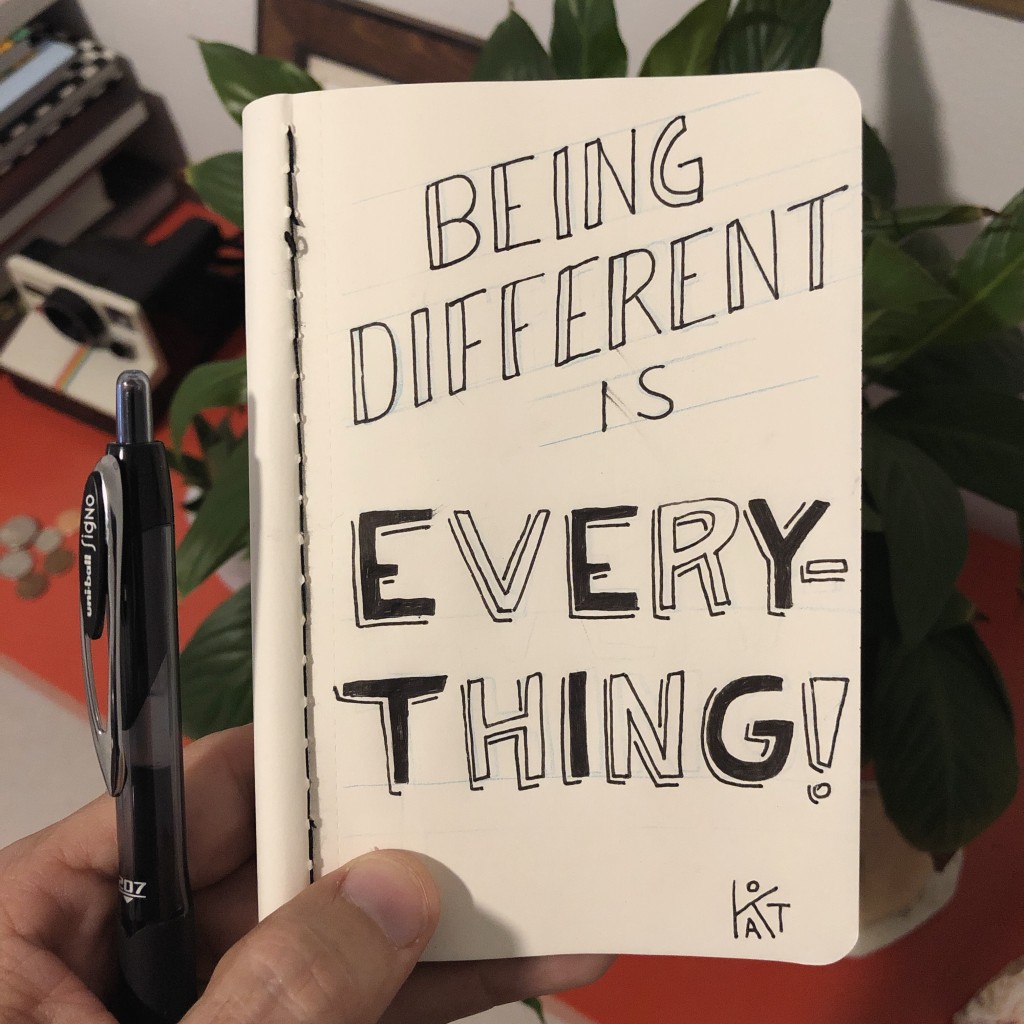 BEING
DIFFERENT
IS
EVERY-
THING!
uni-ball Signo
207